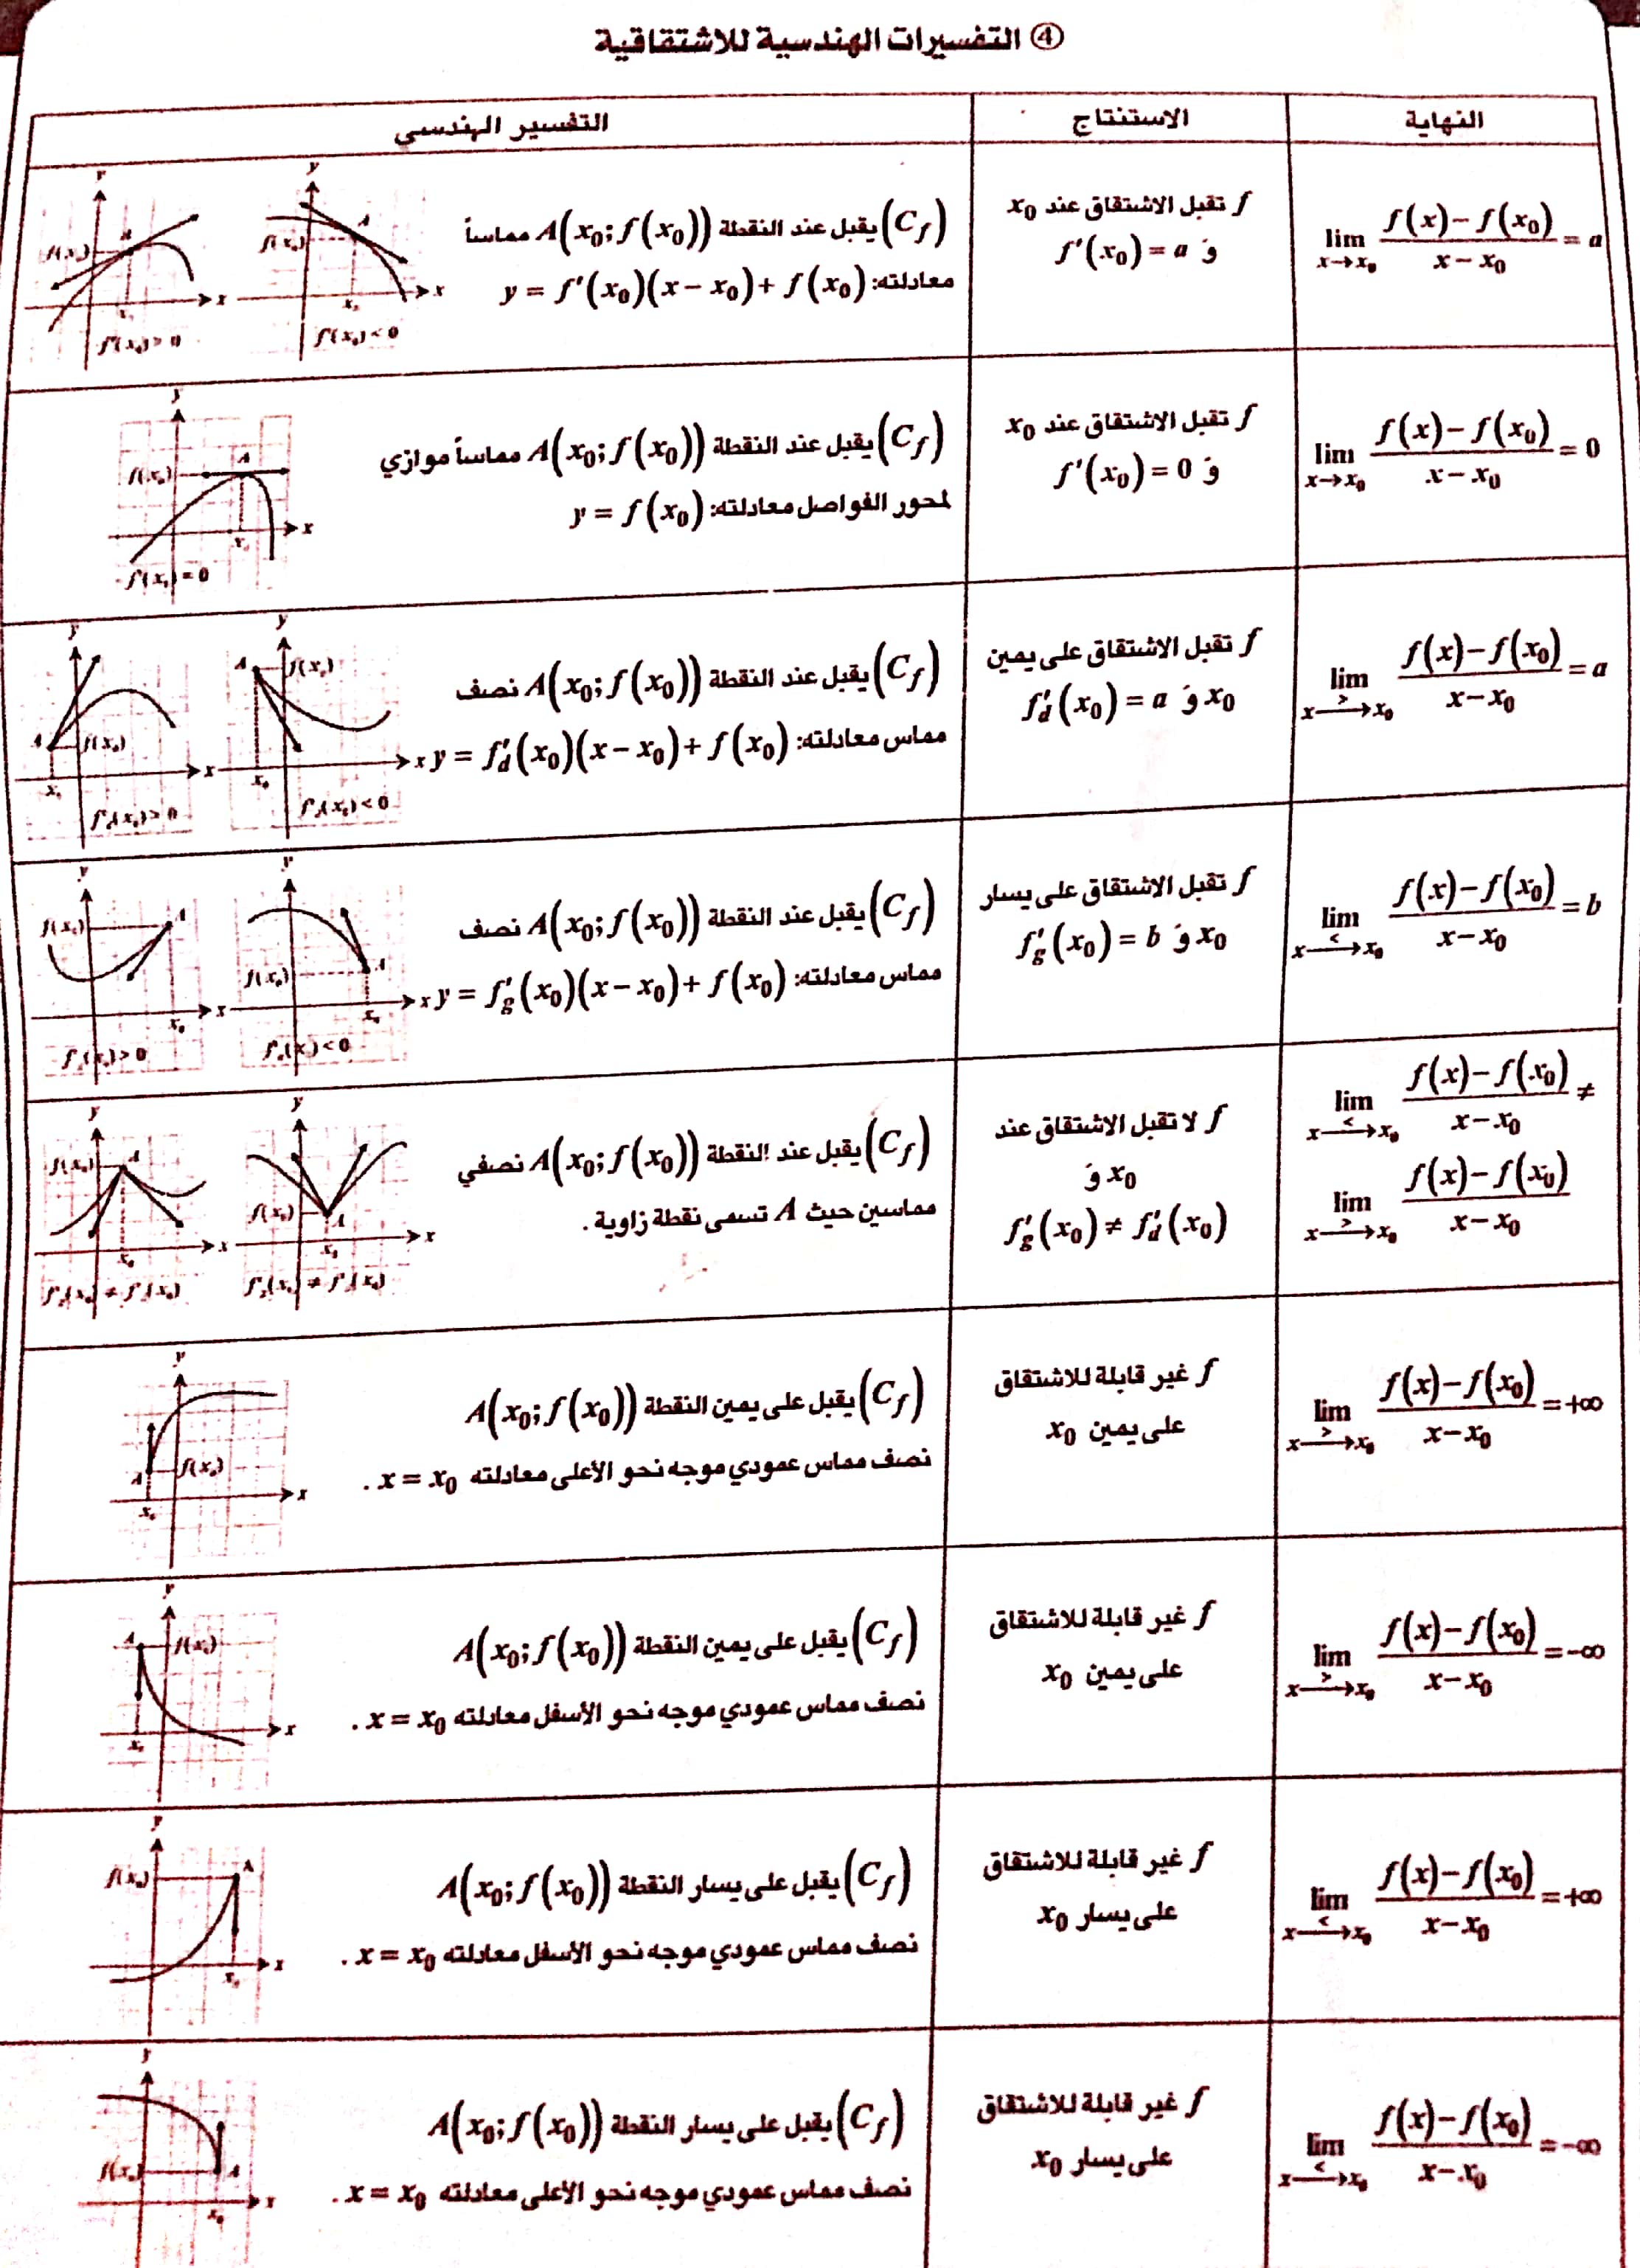 ④ التفسيرات الهندسية للاشتقاقية
النهاية
الاستنتاج
التفسير الهندسي
lim x→x₀ (f(x)−f(x₀))/(x−x₀) = a
f تقبل الاشتقاق عند x₀
وَ f'(x₀) = a
(C_f) يقبل عند النقطة A(x₀; f(x₀)) مماساً
معادلته: y = f'(x₀)(x − x₀) + f(x₀)
f'(x₀) < 0
f'(x₀) > 0
lim x→x₀ (f(x)−f(x₀))/(x−x₀) = 0
f تقبل الاشتقاق عند x₀
وَ f'(x₀) = 0
(C_f) يقبل عند النقطة A(x₀; f(x₀)) مماساً موازي
لمحور الفواصل معادلته: y = f(x₀)
f'(x₀) = 0
lim x→^> x₀ (f(x)−f(x₀))/(x−x₀) = a
f تقبل الاشتقاق على يمين
x₀ وَ f'_d(x₀) = a
(C_f) يقبل عند النقطة A(x₀; f(x₀)) نصف
مماس معادلته: y = f'_d(x₀)(x − x₀) + f(x₀)
f'_d(x₀) < 0
f'_d(x₀) > 0
lim x→^< x₀ (f(x)−f(x₀))/(x−x₀) = b
f تقبل الاشتقاق على يسار
x₀ وَ f'_g(x₀) = b
(C_f) يقبل عند النقطة A(x₀; f(x₀)) نصف
مماس معادلته: y = f'_g(x₀)(x − x₀) + f(x₀)
lim x→^< x₀ (f(x)−f(x₀))/(x−x₀) ≠
lim x→^> x₀ (f(x)−f(x₀))/(x−x₀)
f لا تقبل الاشتقاق عند
x₀ وَ
f'_g(x₀) ≠ f'_d(x₀)
(C_f) يقبل عند النقطة A(x₀; f(x₀)) نصفي
مماسين حيث A تسمى نقطة زاوية .
lim x→^> x₀ (f(x)−f(x₀))/(x−x₀) = +∞
f غير قابلة للاشتقاق
على يمين x₀
(C_f) يقبل على يمين النقطة A(x₀; f(x₀))
نصف مماس عمودي موجه نحو الأعلى معادلته x = x₀ .
lim x→^> x₀ (f(x)−f(x₀))/(x−x₀) = −∞
f غير قابلة للاشتقاق
على يمين x₀
(C_f) يقبل على يمين النقطة A(x₀; f(x₀))
نصف مماس عمودي موجه نحو الأسفل معادلته x = x₀ .
lim x→^< x₀ (f(x)−f(x₀))/(x−x₀) = +∞
f غير قابلة للاشتقاق
على يسار x₀
(C_f) يقبل على يسار النقطة A(x₀; f(x₀))
نصف مماس عمودي موجه نحو الأسفل معادلته x = x₀ .
lim x→^< x₀ (f(x)−f(x₀))/(x−x₀) = −∞
f غير قابلة للاشتقاق
على يسار x₀
(C_f) يقبل على يسار النقطة A(x₀; f(x₀))
نصف مماس عمودي موجه نحو الأعلى معادلته x = x₀ .